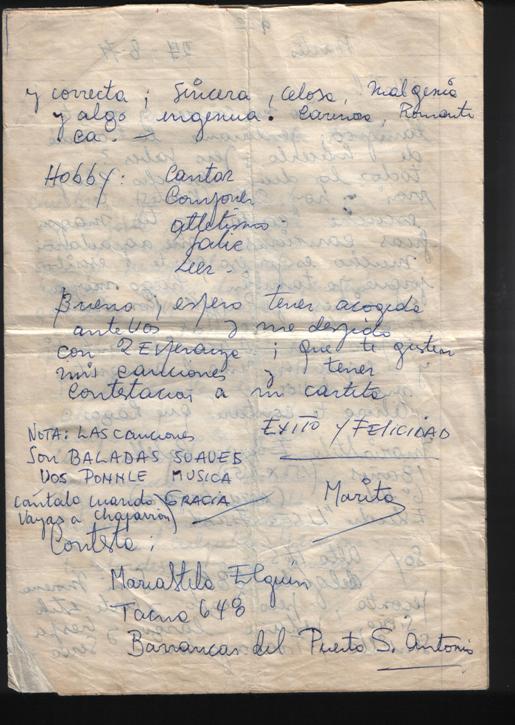 y correcta ; Sincera, celosa, Malgenia
y algo ingenua. Carinosa, Romanti
ca. —
Hobby: Cantar
Componer
atletismo.
Leer
Bueno, espero tener acogida
ante Vos y me despido
con 2 Esperanza ; que te gusten
mis canciones y tener
Contestacion a mi cartita
EXITO Y FELICIDAD
NOTA: LAS canciones
Son BALADAS SUAVES
VOS PONNLE MUSICA
cantalo cuando GRACIA
Vayas a Chañarcin)
Marita
Contesta:
Maria Stela Elguin
Tacna 648
Barrancas del Puerto S. Antonio